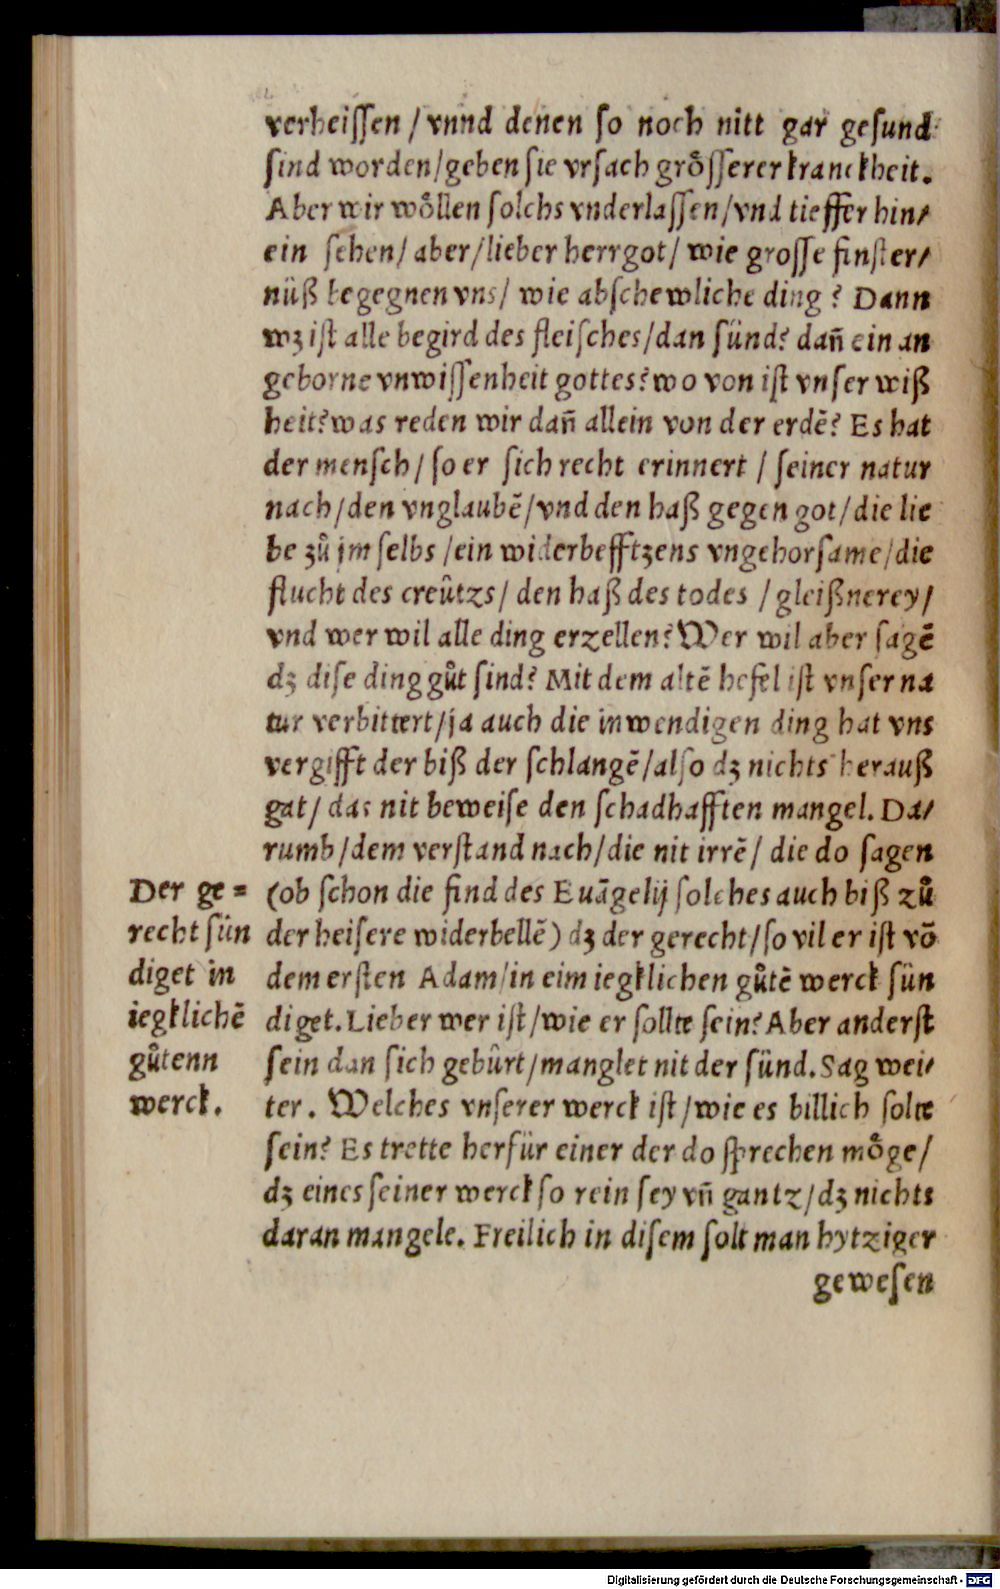 verheissen / vnnd denen so noch nitt gar gesund
sind worden/geben sie vrsach groͤsserer kranckheit.
Aber wir woͤllen solchs vnderlassen/vnd tieffer hin/
ein sehen/ aber/lieber herrgot/ wie grosse finster/
nüß begegnen vns/ wie abschewliche ding ? Dann
wꝫ ist alle begird des fleisches/dan sünd? dañ ein an
geborne vnwissenheit gottes? wo von ist vnser wiß
heit? was reden wir dañ allein von der erdē? Es hat
der mensch/ so er sich recht erinnert / seiner natur
nach/den vnglaubē/vnd den haß gegen got/die lie
be zů jm selbs /ein widerbefftzens vngehorsame/die
flucht des creûtzs/ den haß des todes /gleißnerey/
vnd wer wil alle ding erzellen? Wer wil aber sagē
dꝫ dise ding gůt sind? Mit dem altē hefel ist vnser na
tur verbittert/ja auch die inwendigen ding hat vns
vergifft der biß der schlangē/also dꝫ nichts herauß
gat/ das nit beweise den schadhafften mangel. Da/
rumb/dem verstand nach/die nit irrē/ die do sagen
(ob schon die find des Euāgelij solches auch biß zů
der heisere widerbellē) dꝫ der gerecht/so vil er ist vō
dem ersten Adam/in eim iegklichen gůtē werck sün
diget. Lieber wer ist/wie er sollte sein? Aber anderst
sein dan sich gebûrt/manglet nit der sünd. Sag wei/
ter. Welches vnserer werck ist/wie es billich solte
sein? Es trette herfür einer der do sprechen moͤge/
dꝫ eines seiner werck so rein sey vñ gantz/dꝫ nichts
daran mangele. Freilich in disem solt man hytziger
gewesen
Der ge=
recht sün
diget in
iegklichē
gůtenn
werck.
Digitalisierung gefördert durch die Deutsche Forschungsgemeinschaft - DFG